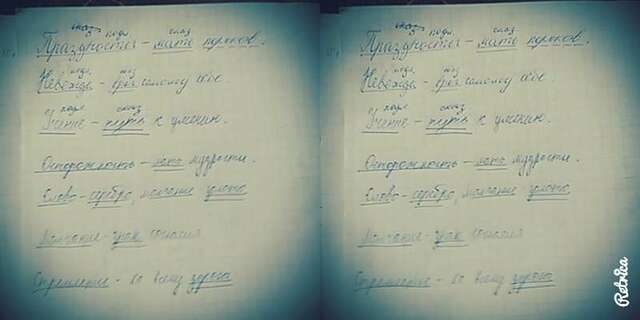 сказ. подл. сказ
Праздность - мать пороков.
подл. сказ
Невежда - враг самому себе.
подл. сказ
Учение - путь к умению.
Осторожность - мать мудрости.
Слово - серебро, молчание золото
Молчание - знак согласия
Стремление - ко всему дорога
подл. сказ
Праздность - мать пороков.
подл. сказ
Невежда - враг самому себе.
подл. сказ
Учение - путь к умению.
Осторожность - мать мудрости.
Слово - серебро, молчание золото
Молчание - знак согласия
Стремление - ко всему дорога
Retrica